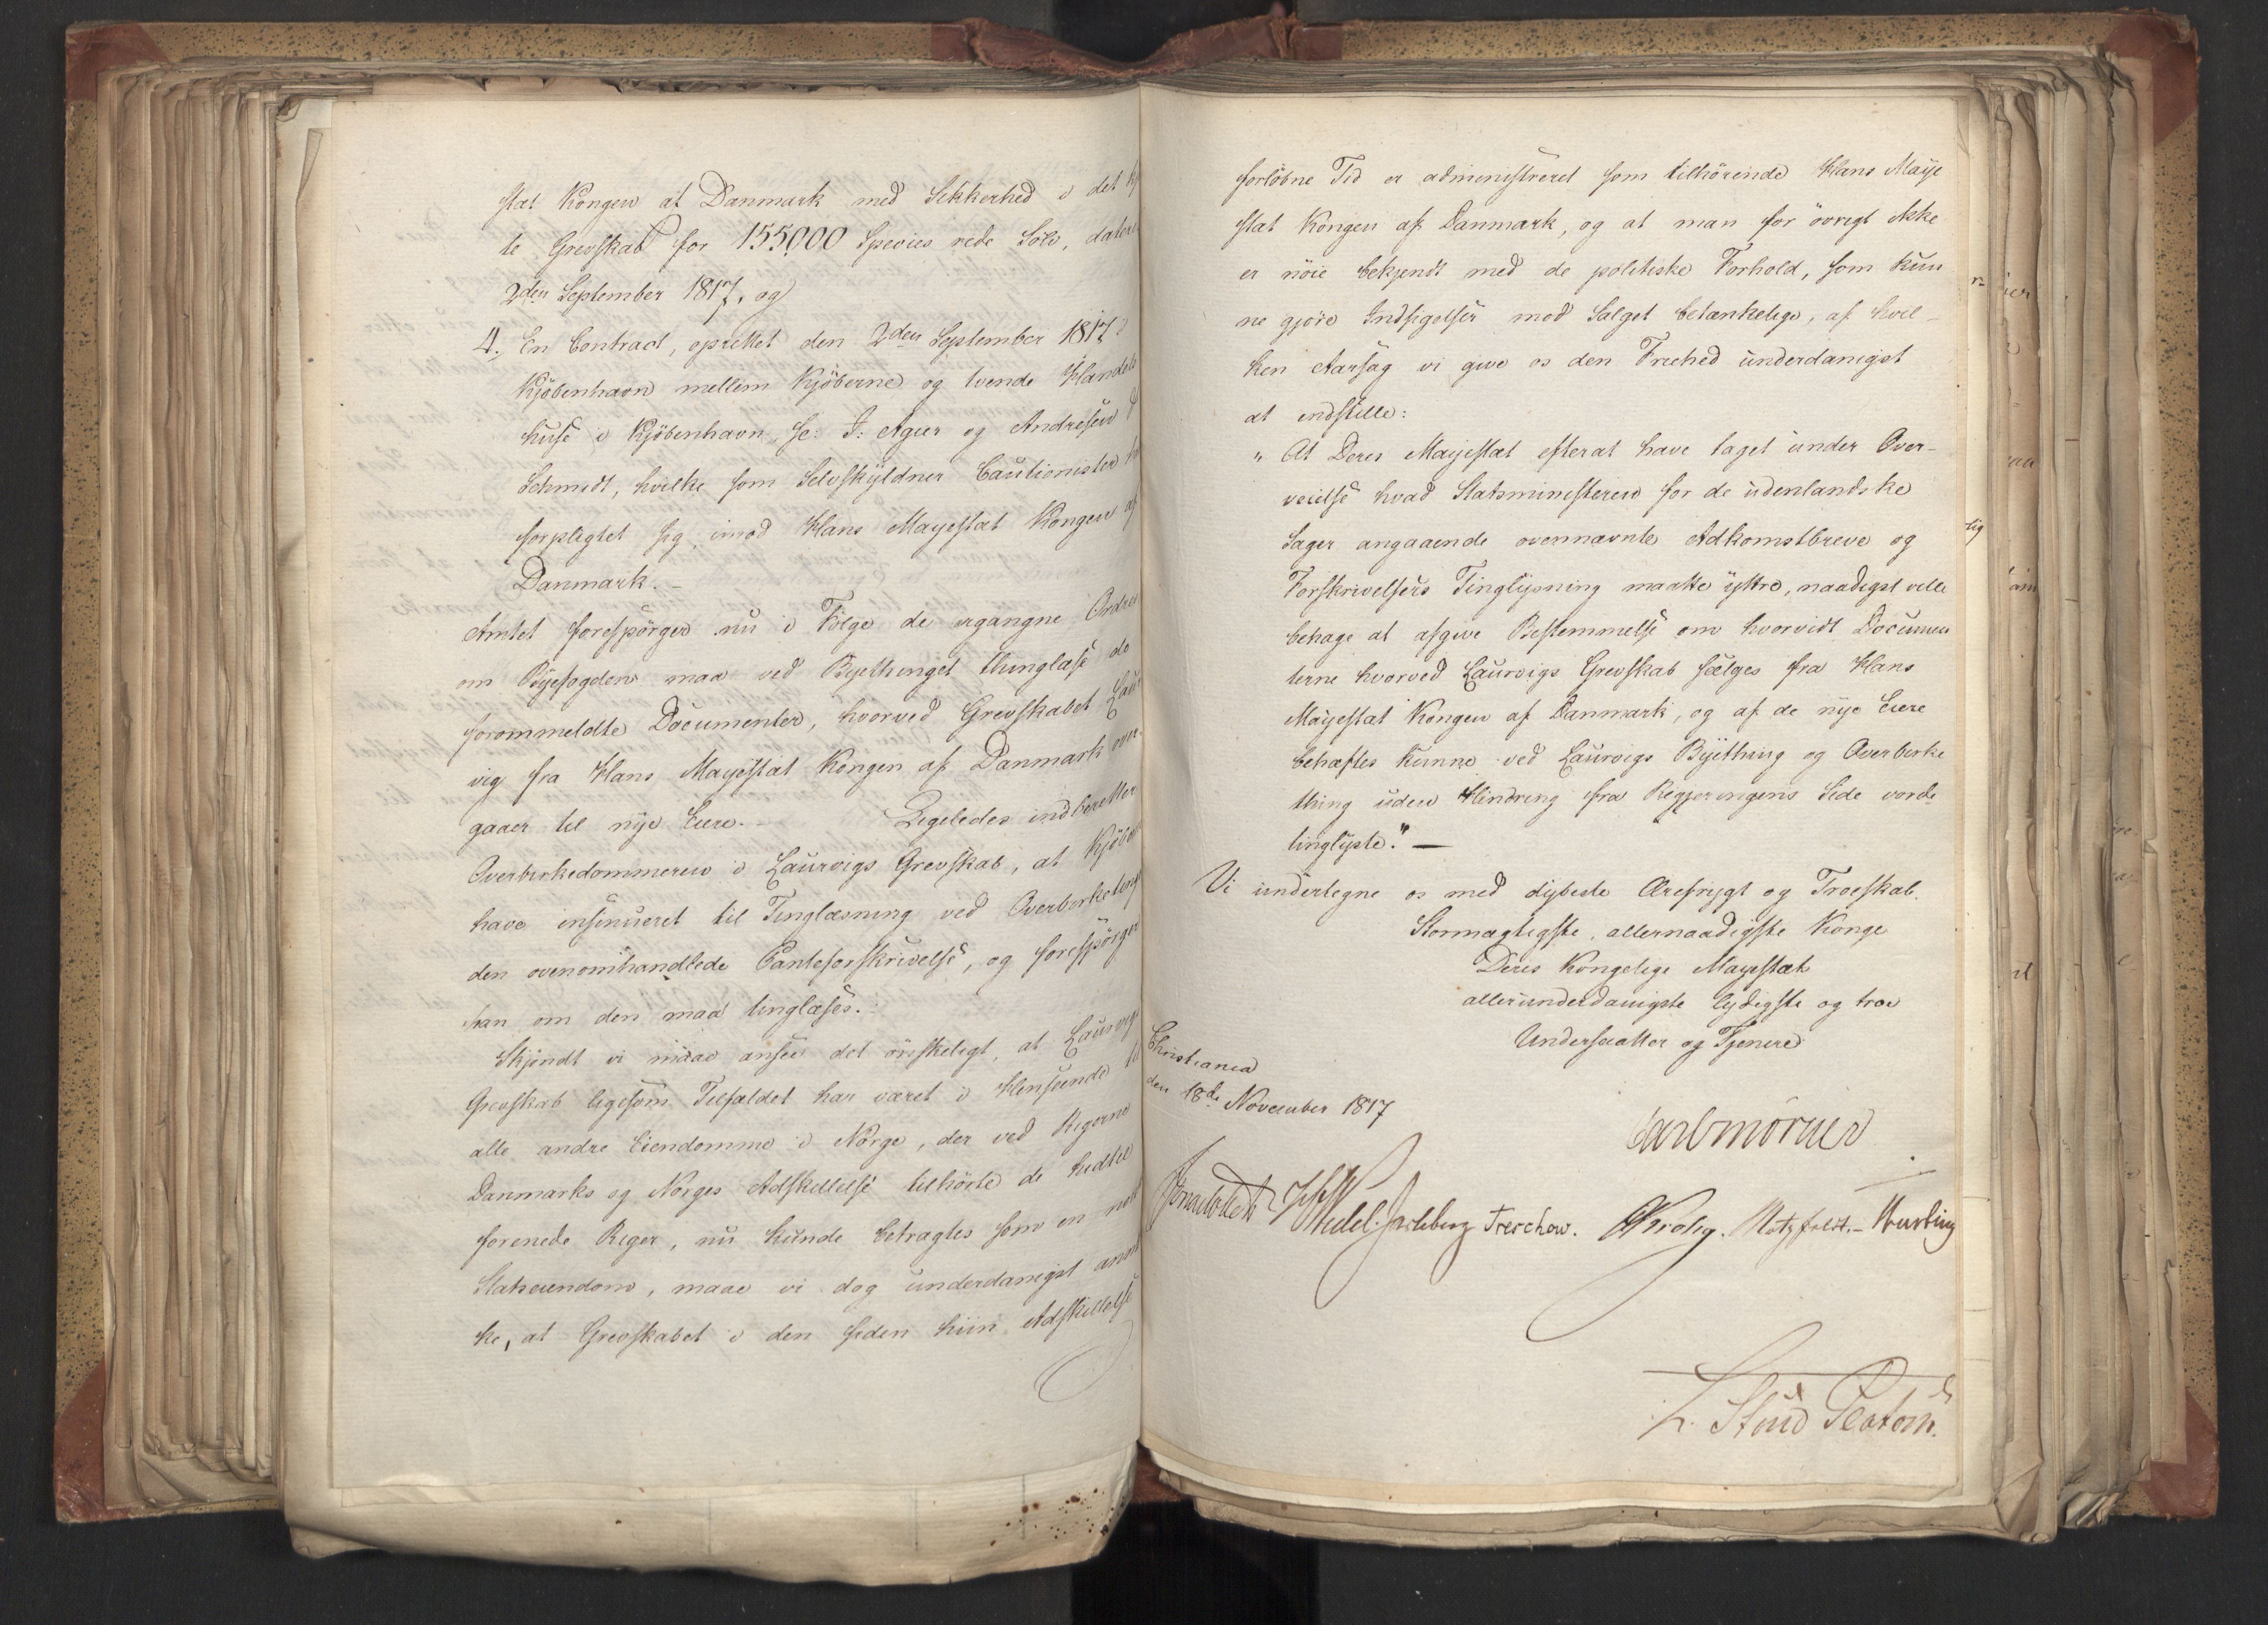 stæt Kongen af Danmark med Sikkerhed i det
te Grevskab for 155000 Species rede Sölv, datere
2den September 1817, og
4. En Contract, oprettet den 2den September 1817 i
Kjöbenhavn mellem Kjöberne og tvende Handels
huse i Kjöbenhavn, sc: J: Agier og Andresen &
Schmidt, hvilke som Selvskyldner Cautionister
forpligtet sig imod Hans Mayestæt Kongen af
Danmark. –
Amtet forespörger nu i Fölge de ergangne Ordre
om Byefogden maa ved Byethinget thinglæse de
forommeldte Documenter, hvorved Grevskabet Laur
vig fra Hans Mayestæt Kongen af Danmark over-
gaaer til nye Eiere. – Ligeledes indberetter
Overbirkedommeren i Laurvigs Grevskab, at Kjöbe
have insinueret til Tinglæsning ved Overbirketinge
den ovenomhandlede Panteforskrivelse, og forespörger
han om den maa tinglæses. –
Skjöndt vi maae ansee det önskeligt, at Laurvigs
Grevskab ligesom Tilfældet har været i Henseende til
alle andre Eiendomme i Norge, der ved Rigerne
Danmarks og Norges Adskillelse tilhörte de hidtil
forenede Riger, nu kunde betragtes som en
Statseiendom, maae vi dog underdanigst anmær
ke, at Grevskabet i den siden hiin Adskillelse
forlöbne Tid er administreret som tilhörende Hans Maye
stæt Kongen af Danmark, og at man for övrigt ikke
er nöie bekjendt med de politiske Forhold, som kun
ne gjöre Indsigelser mod Salget betænkelige, af hvil-
ken Aarsag vi give os den Friehed underdanigst
at indstille:
"At Deres Mayestæt efterat have taget under Over-
veielse hvad Statsministeren for de udenlandske
Sager angaaende ovennævnte Adkomstbreve og
Forskrivelsers Tinglysning maatte yttre, naadigst ville
behage at afgive Bestemmelse om hvorvidt Documen
terne hvorved Laurvigs Grevskab sælges fra Hans
Mayestæt Kongen af Danmark, og af de nye Eiere
behæftes kunne ved Laurvigs Byething og Overbirke
thing uden Hindring fra Regjeringens Side vorde
tinglyste." –
Vi undertegne os med dybeste Ærefrygt og Troeskab.
Stormægtigste, allernaadigste Konge
Deres Kongelige Mayestæts
allerunderdanigste lydigste og troe
Undersaatter og Tjenere
Christiania
den 18de November 1817
Carl Mörner
HWedel-Jarlsberg Treschow. CKrohg. Motzfeldt. –
L. Stoud Platou